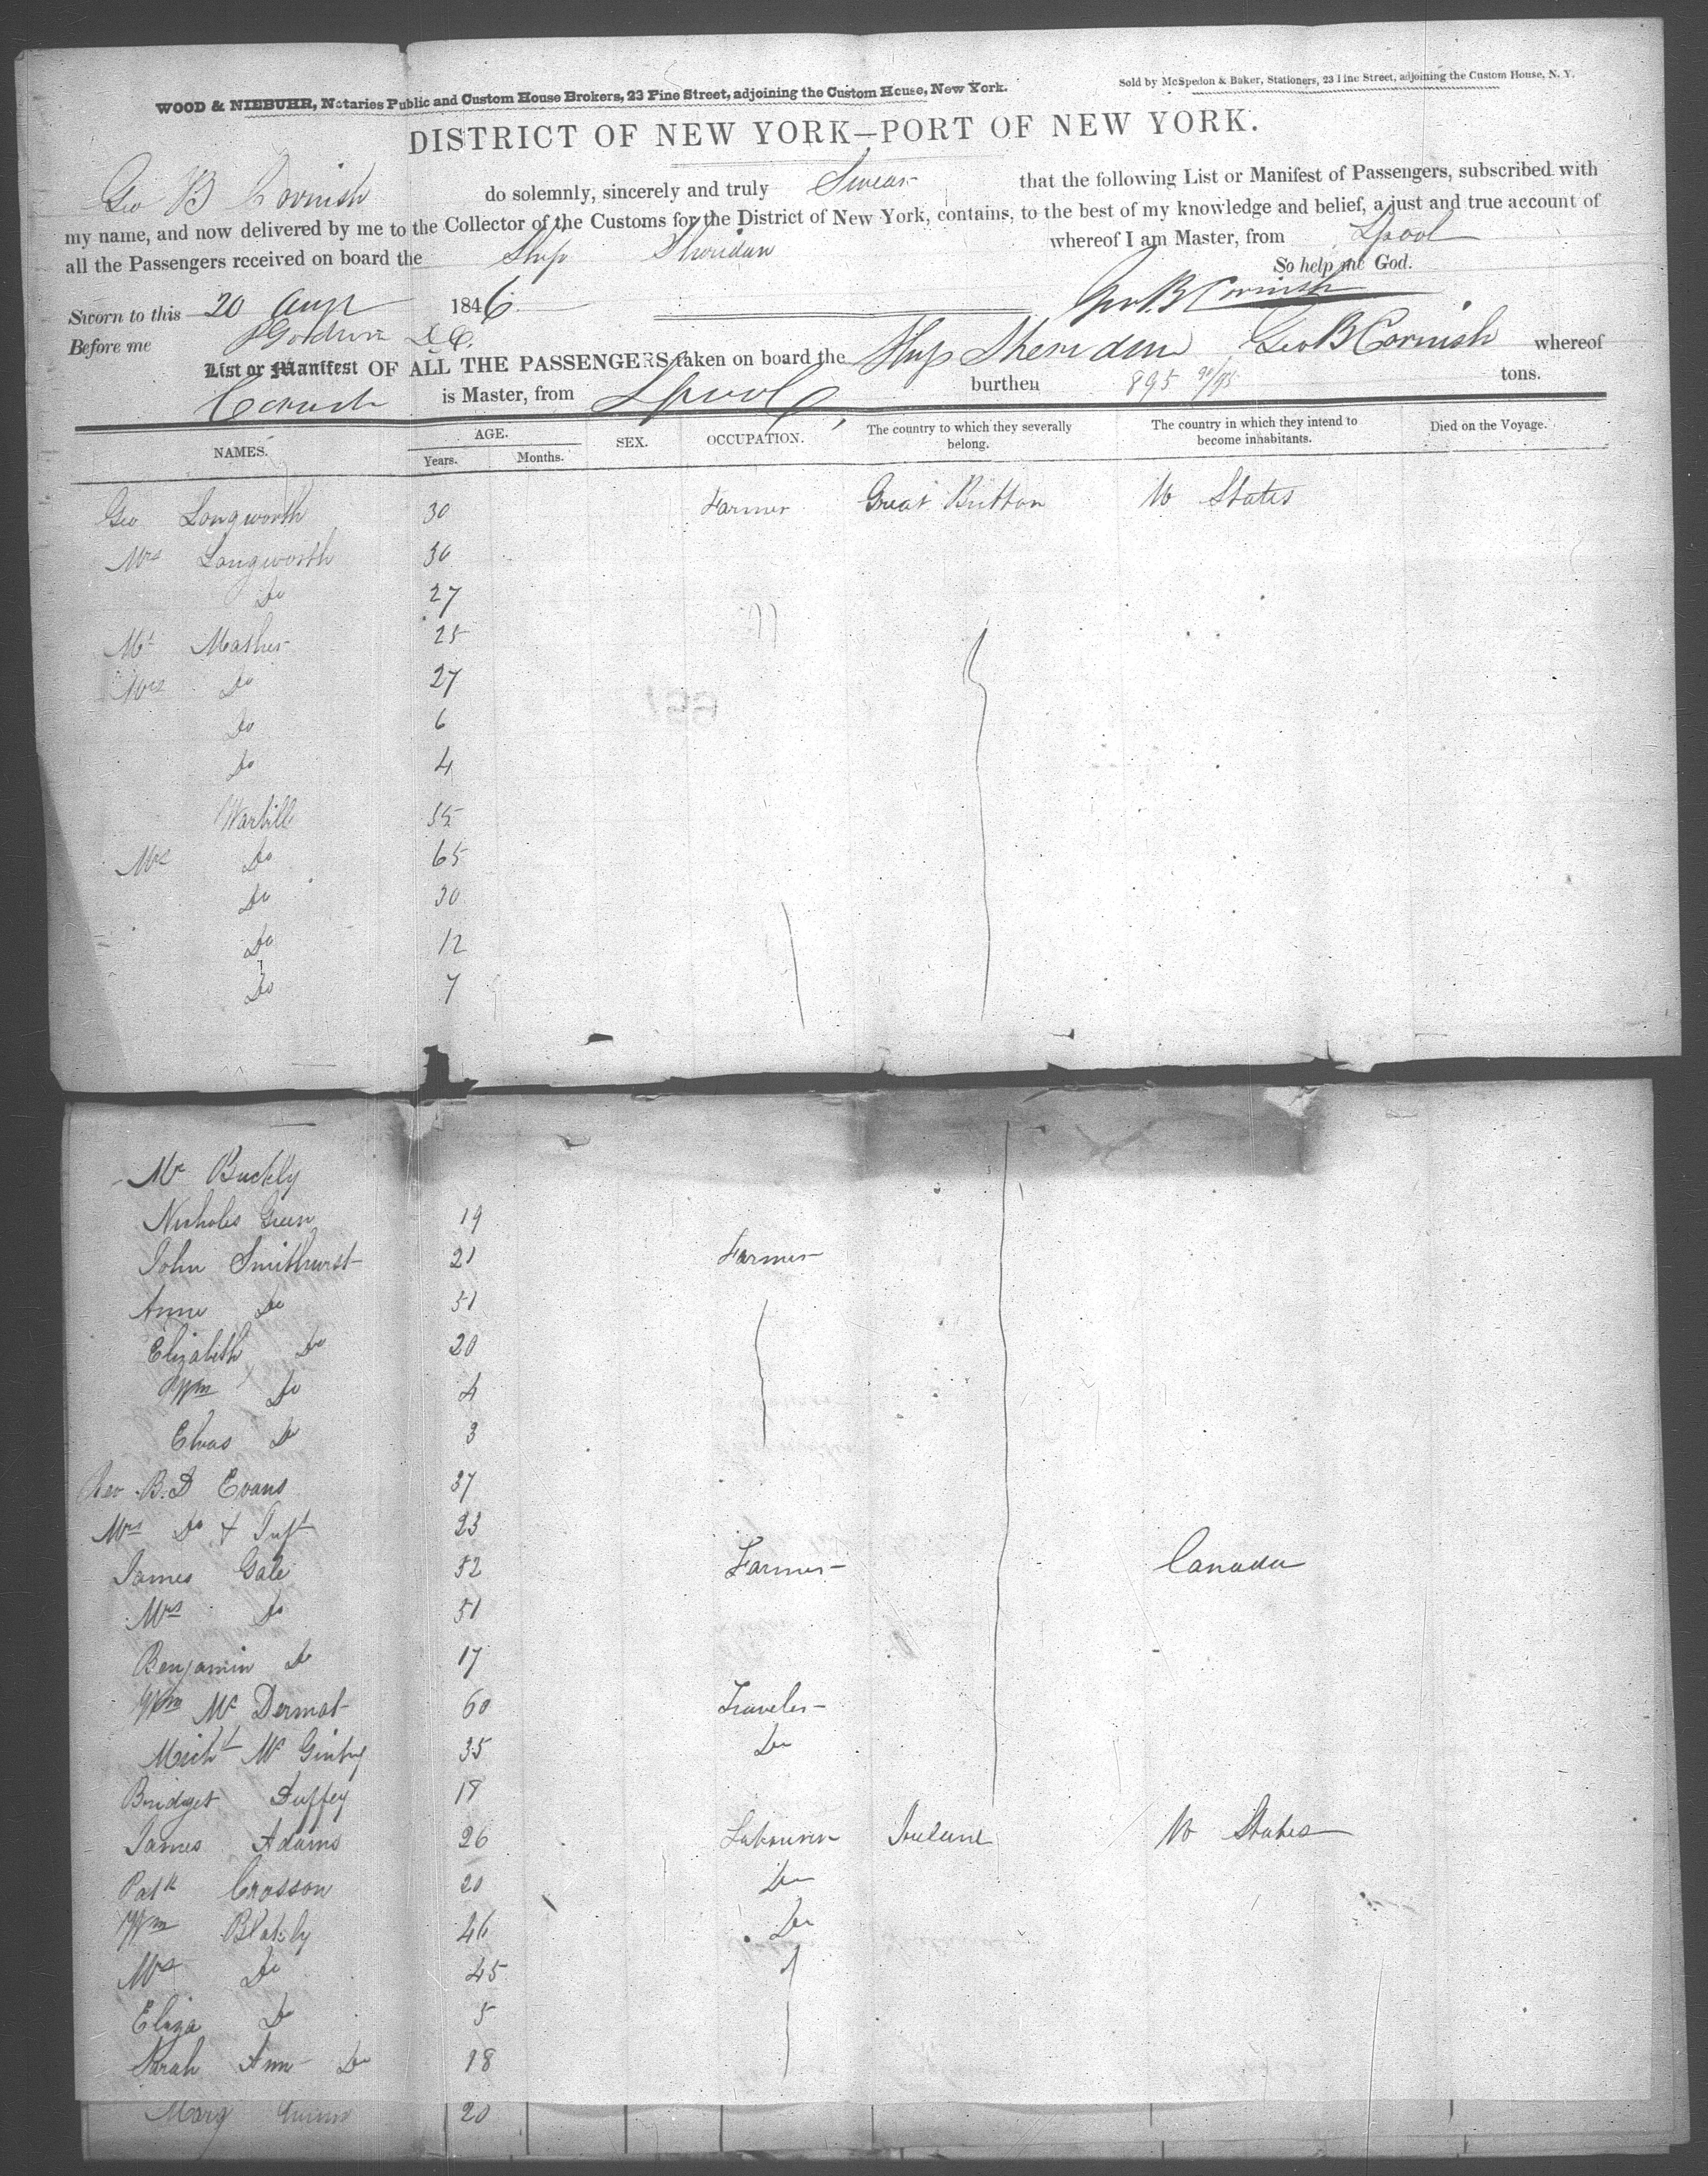 WOOD & NIEBUHR, Notaries Public and Custom House Brokers, 23 Pine Street, adjoining the Custom House, New York.
Sold by McSpedon & Baker, Stationers, 23 Pine Street, adjoining the Custom House, N. Y.
DISTRICT OF NEW YORK—PORT OF NEW YORK.
Geo B Cornish do solemnly, sincerely and truly Swear that the following List or Manifest of Passengers, subscribed with
my name, and now delivered by me to the Collector of the Customs for the District of New York, contains, to the best of my knowledge and belief, a just and true account of
all the Passengers received on board the Ship Sheridan whereof I am Master, from Lpool
So help me God.
Sworn to this 20 Aug 1846 Geo. B Cornish
Before me D C.
List or Manifest OF ALL THE PASSENGERS taken on board the Ship Sheridan Geo B Cornish whereof
Cornish is Master, from Lpool burthen 895 90/95 tons.
NAMES. AGE. Years. Months. SEX. OCCUPATION. The country to which they severally belong. The country in which they intend to become inhabitants. Died on the Voyage.
Geo Longworth 30 Farmer Great Britton U States
Mrs Longworth 30
Do 27
Mr Mather 25
Mrs Do 27
Do 6
Do 4
Warbill 55
Mrs Do 65
Do 30
Do 12
Do 7
Mr Buckly
Nicholas Green 19
John Smithurst 21 Farmer
Anne Do 51
Elizabeth Do 20
Wm Do 4
Do 3
Rev B. D Evans 37
Mrs Do & Inft 23
James Gale 52 Farmer Canada
Mrs Do 51
Benjamin Do 17
Wm Mc Dermot 60 Traveler
Michl Mc Ginty 35 Do
Bridget Duffey 18
James Adams 26 Labourer Ireland U States
Patk Crosson 20 Do
Wm Blakly 46 Do
Mrs Do 45
Eliza Do 5
Sarah Ann Do 18
Mary 20